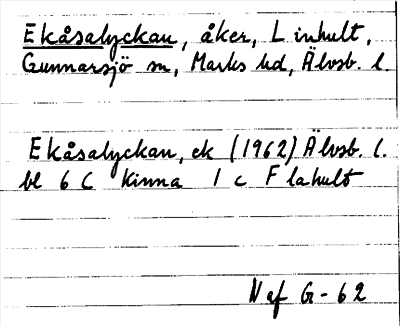 Ekåsalyckan, åker, Linhult,
Gunnarsjö sn, Marks hd, Älvsb. l.
Ekåsalyckan, ek (1962) Älvsb. l.
bl 6 C Kinna 1 c Flahult
Naf G-62